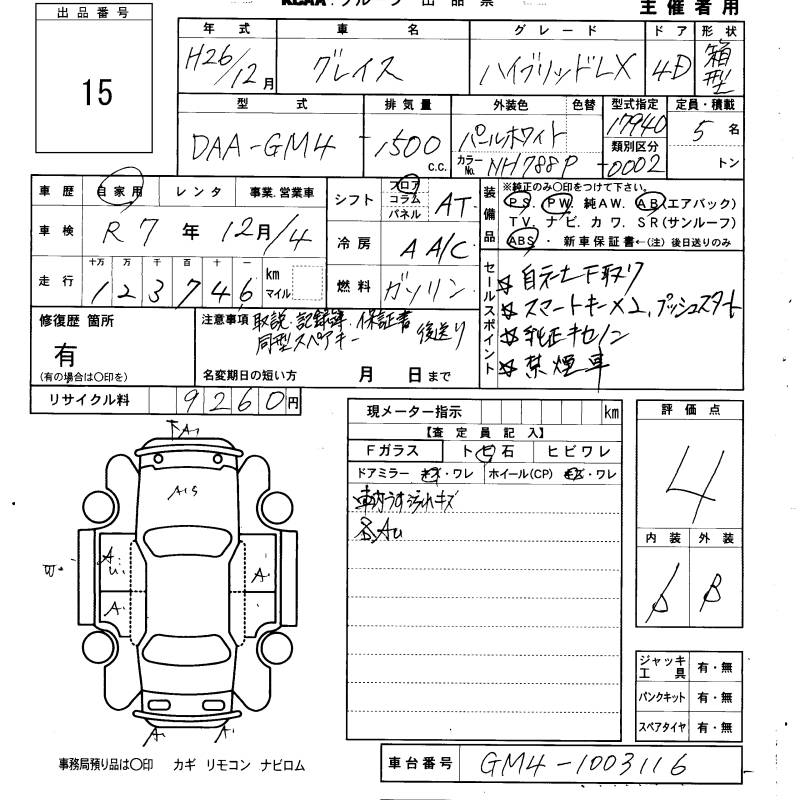 出品番号
15
主催者用
年式 車名 グレード ドア 形状
H26/12月 グレイス ハイブリッドLX 4D 箱型
型式 排気量 外装色 色替 型式指定 定員・積載
DAA-GM4 1500 c.c. パールホワイト 17940 5名
カラーNo. NH788P 類別区分 0002 トン
車歴 自家用 レンタ 事業.営業車
シフト フロア コラム パネル AT
装備品 ※純正のみ〇印をつけて下さい。
PS. PW. 純AW. AB(エアバック)
TV. ナビ. カワ. SR(サンルーフ)
ABS. 新車保証書←(注)後日送りのみ
車検 R7年12月/4
冷房 AA/C
走行 十万 万 千 百 十 一 km マイル
123746
燃料 ガソリン
セールスポイント
☆自社下取り
☆スマートキー×2, プッシュスタート
☆純正
☆禁煙車
修復歴 箇所
有
(有の場合は〇印を)
注意事項 取説.記録簿.保証書
同型スペアキー 後送り
名変期日の短い方 月 日まで
リサイクル料 9260円
現メーター指示 km
【査定員記入】
Fガラス ト ビ 石 ヒビワレ
ドアミラー キズ・ワレ ホイール(CP) キズ・ワレ
車内うすよごれキズ
各AU
評価点
4
内装 外装
B B
A1
A15
A
U
A
A
A
A A
ジャッキ工具 有・無
パンクキット 有・無
スペアタイヤ 有・無
事務局預り品は〇印 カギ リモコン ナビロム
車台番号 GM4-1003116